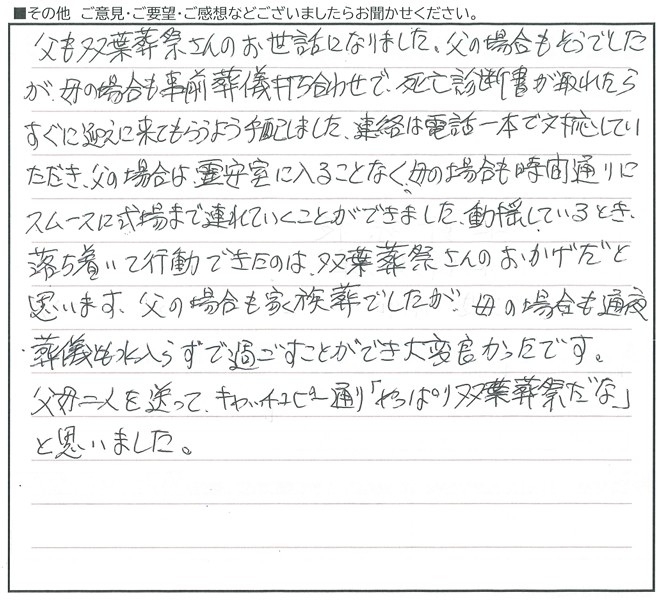 ■その他 ご意見・ご要望・ご感想などございましたらお聞かせください。
父も双葉葬祭さんのお世話になりました。父の場合もそうでした
が、母の場合も事前葬儀打ち合わせで、死亡診断書が取れたら
すぐに迎えに来てもらうよう手配しました、連絡は電話一本で対応してい
ただき、父の場合は、霊安室に入ることなく、母の場合も時間通りに
スムースに式場まで連れていくことができました、動揺しているとき、
落ち着いて行動できたのは、双葉葬祭さんのおかげだと
思います、父の場合も家族葬でしたが、母の場合も通夜
葬儀も水入らずで過ごすことができ大変良かったです。
父母二人を送って、キャッチコピー通り「やっぱり双葉葬祭だな」
と思いました。